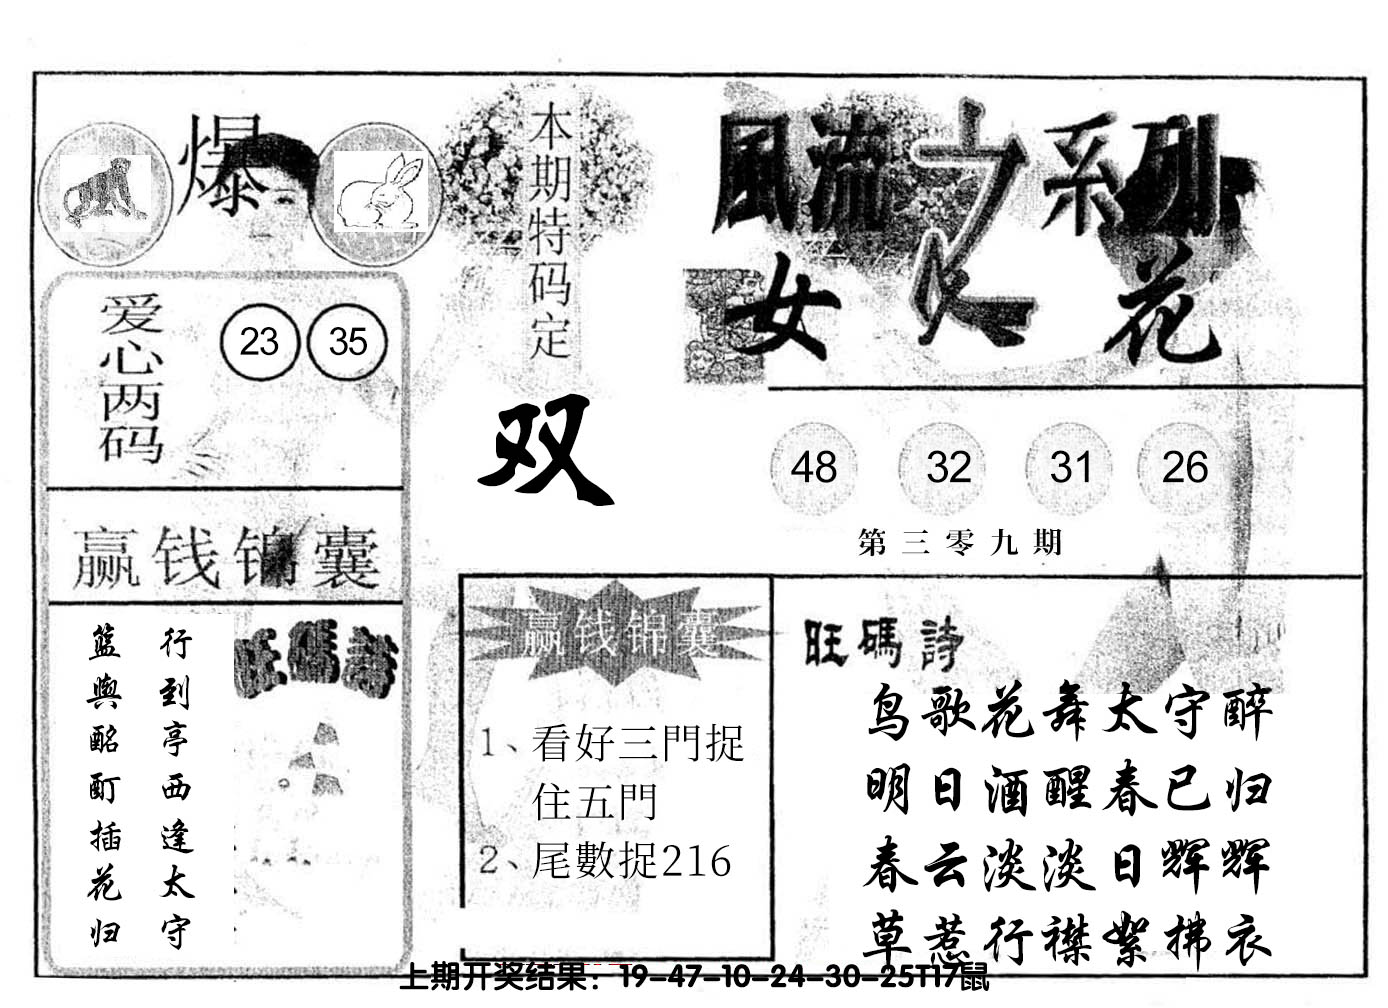 爆
本期特码定
双
風流之系列
女人花
爱心两码
23 35
48 32 31 26
第三零九期
赢钱锦囊
行到亭西逢太守
篮舆酩酊插花归
旺碼詩
赢钱锦囊
1、看好三門捉
住五門
2、尾數捉216
旺碼詩
鸟歌花舞太守醉
明日酒醒春已归
春云淡淡日辉辉
草惹行襟絮拂衣
上期开奖结果：19-47-10-24-30-25T17鼠